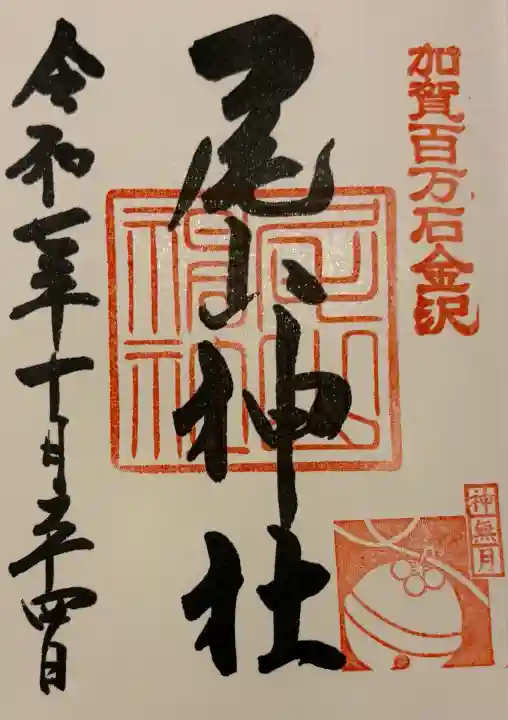 加賀百万石金沢
尾山神社
尾山神社
神無月
令和年十月二十四日